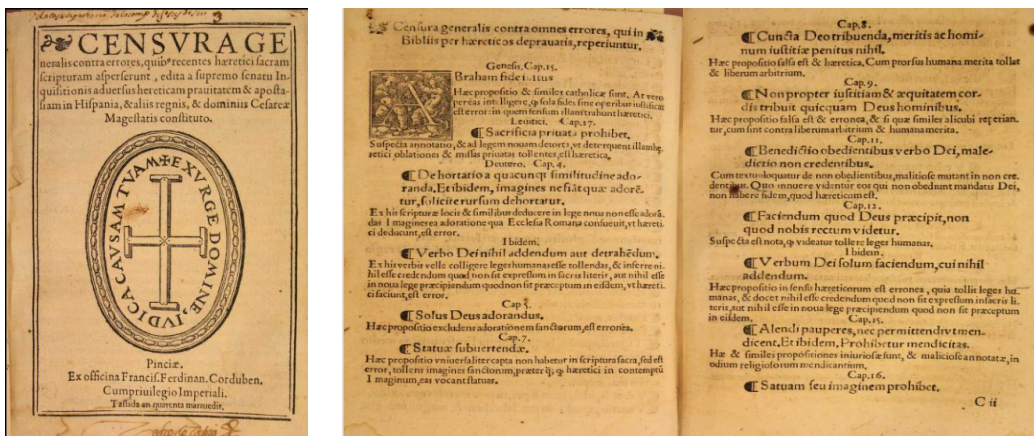 3
CENSVRAGE
neralis contra errores, quibꝰ recentes hæretici sacram
scripturam asperserunt, edita a supremo senatu In-
quisitionis aduersus hereticam prauitatem & aposta-
siam in Hispania, & aliis regnis, & dominiis Cesareæ
Magestatis constituto.
✠EXVRGE DOMINE, IVDICA CAVSAM TVAM
Pinciæ.
Ex officina Francis. Ferdinan. Corduben.
Cum priuilegio Imperiali.
Tassada an quarenta marauedis.
Censura generalis contra omnes errores, qui in
Bibliis per hæreticos deprauatis, reperiuntur.
Genesis. Cap. 15.
Braham fide iustus
Hæc propositio & similes catholicæ sunt. At vero
per eas intelligere, ꝙ sola fides sine operibus iustificat
est error: in quem sensum illam trahunt hæretici.
Leuitici. Cap. 17.
¶ Sacrificia priuata prohibet.
Suspecta annotatio, & ad legem nouam detorta, vt
retici oblationes & missas priuatas tollentes, est hæretica.
Deutero. Cap. 4.
¶ Dehortatio a quacunqȝ similitudine ado-
randa. Et ibidem, imagines ne fiāt quæ adorē-
tur, solicite rursum dehortatur.
Ex his scripturæ locis & similibus deducere in lege noua non esse adorā-
das Imagines ea adoratione qua Ecclesia Romana consueuit, vt hæreti-
ci deducunt, est error.
Ibidem.
¶ Verbo Dei nihil addendum aut detrahēdum.
Ex his verbis velle colligere leges humanas esse tollendas, & inferre ni-
hil esse credendum quod non sit expressum in sacris literis, aut nihil esse
in noua lege præcipiendum quod non sit præceptum in eisdem, vt hæreti-
ci faciunt, est error.
Cap 5.
¶ Solus Deus adorandus.
Hæc propositio excludens adorationem sanctorum, est erronea.
Cap. 7.
¶ Statuæ subuertendæ.
Hæc propositio vniuersaliter capta non habetur in scriptura sacra, sed est
error, tollens imagines sanctorum, præter ꝙ hæretici in contemptū
Imaginum, eas vocant statuas.
Cap. 8.
¶ Cuncta Deo tribuenda, meritis ac homi-
num iustitiæ penitus nihil.
Hæc propositio falsa est & hæretica, Cum prorsus humana merita tollat
& liberum arbitrium.
Cap. 9.
¶ Non propter iustitiam & æquitatem cor-
dis tribuit quicquam Deus hominibus.
Hæc propositio falsa est & erronea, & si quæ similes alicubi reperian-
tur, cum sint contra liberum arbitrium & humana merita.
Cap. 11.
¶ Benedictio obedientibus verbo Dei, male-
dictio non credentibus.
Cum textus loquatur de non obedientibus, malitiose mutant in non cre-
dentibus. Quo innuere videntur eos qui non obediunt mandatis Dei,
non habere fidem, quod hæreticum est.
Cap. 12.
¶ Faciendum quod Deus præcipit, non
quod nobis rectum videtur.
Suspecta est nota, ꝙ videatur tollere leges humanas.
Ibidem.
¶ Verbum Dei solum faciendum, cui nihil
addendum.
Hæc propositio in sensu hæreticorum est erronea, quia tollit leges hu-
manas, & docet nihil esse credendum quod non sit expressum in sacris li-
teris, aut nihil esse in noua lege præcipiendum quod non sit præceptum
in eisdem.
Cap. 15.
¶ Alendi pauperes, nec permittendi vt men-
dicent. Et ibidem, Prohibetur mendicitas.
Hæ & similes propositiones iniuriosæ sunt, & maliciose annotatæ, in
odium religiosorum mendicantium.
Cap. 16.
¶ Satuam seu imaginem prohibet.
C ii